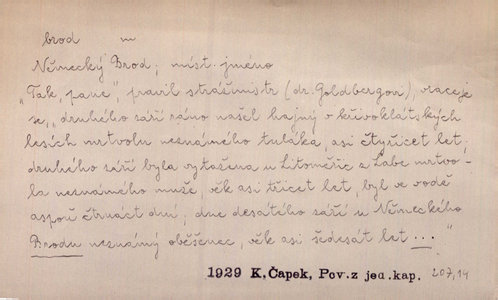 brod m
Německý Brod; míst. jméno
„Tak, pane", pravil strážmistr (dr. Goldbergovi), vraceje
se, „druhého září ráno našel hajný v křivoklátských
lesích mrtvolu neznámého tuláka, asi čtyřicet let;
druhého září byla vytažena u Litoměřic z Labe mrtvo-
la neznámého muže, věk asi třicet let, byl ve vodě
aspoň čtrnáct dní; dne desátého září u Německého
Brodu neznámý oběšenec, věk asi šedesát let ... "
1929 K. Čapek, Pov. z jed. kap. 207,14